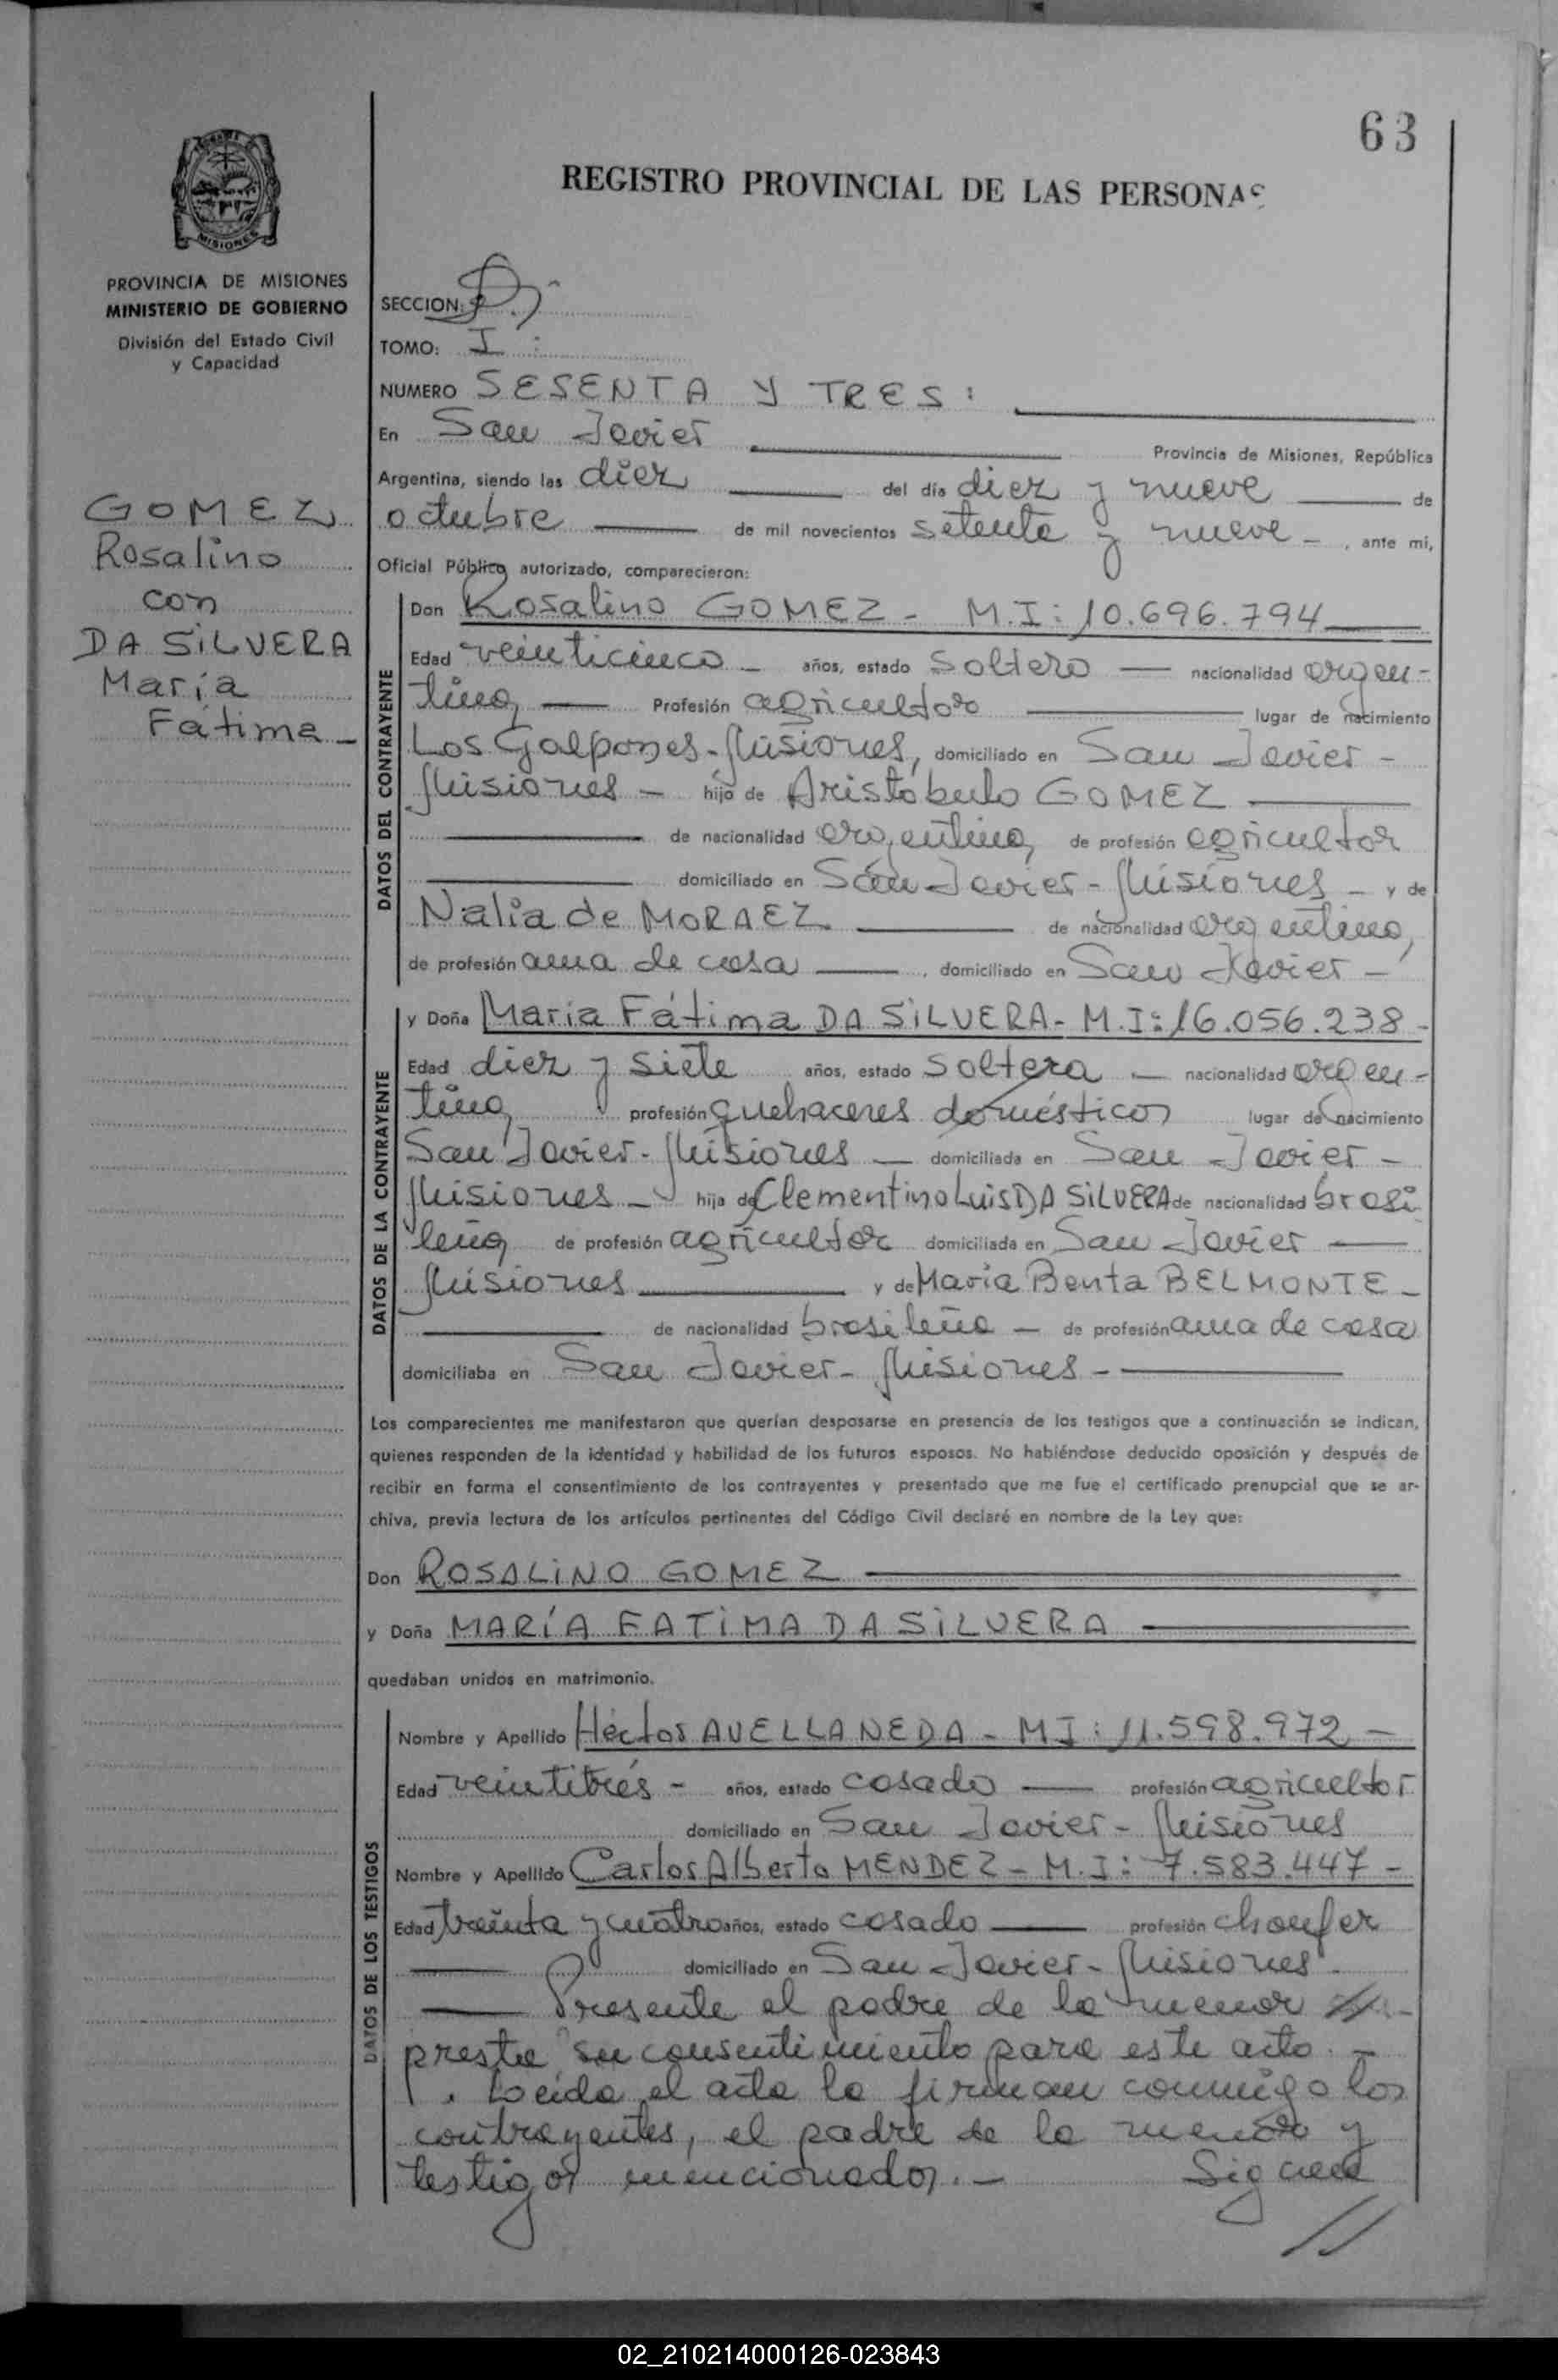 63
REGISTRO PROVINCIAL DE LAS PERSONAS
MISIONES
PROVINCIA DE MISIONES
MINISTERIO DE GOBIERNO
División del Estado Civil
y Capacidad
GOMEZ
Rosalino
con
DA SILVERA
María
Fátima -
SECCION:
TOMO: I :
NUMERO SESENTA Y TRES :
En San Javier Provincia de Misiones, República
Argentina, siendo las diez del día diez y nueve de
octubre de mil novecientos setenta y nueve - , ante mí,
Oficial Público autorizado, comparecieron:
DATOS DEL CONTRAYENTE
Don Rosalino GOMEZ - M.I: 10.696.794
Edad veinticinco - años, estado soltero — nacionalidad argen-
tina, — Profesión agricultor lugar de nacimiento
Los Galpones - Misiones, domiciliado en San Javier -
Misiones - hijo de Aristóbulo GOMEZ
de nacionalidad argentina, de profesión agricultor
domiciliado en San Javier - Misiones - y de
Nalia de MORAEZ de nacionalidad argentina,
de profesión ama de casa , domiciliado en San Javier -
DATOS DE LA CONTRAYENTE
y Doña Maria Fátima DA SILVERA - M.I: 16.056.238 -
Edad diez y siete años, estado soltera - nacionalidad argen-
tina, profesión quehaceres domésticos lugar de nacimiento
San Javier - Misiones - domiciliada en San Javier -
Misiones - hija de Clementino Luis DA SILVERA de nacionalidad brasi
leña, de profesión agricultor domiciliada en San Javier —
Misiones y de María Benta BELMONTE -
de nacionalidad brasileña - de profesión ama de casa
domiciliaba en San Javier - Misiones -
Los comparecientes me manifestaron que querían desposarse en presencia de los testigos que a continuación se indican,
quienes responden de la identidad y habilidad de los futuros esposos. No habiéndose deducido oposición y después de
recibir en forma el consentimiento de los contrayentes y presentado que me fue el certificado prenupcial que se ar-
chiva, previa lectura de los artículos pertinentes del Código Civil declaré en nombre de la Ley que:
Don ROSALINO GOMEZ
y Doña MARÍA FATIMA DA SILVERA
quedaban unidos en matrimonio.
DATOS DE LOS TESTIGOS
Nombre y Apellido Héctor AVELLANEDA - MI: 11.598.972 -
Edad veintitrés - años, estado casado — profesión agricultor
domiciliado en San Javier - Misiones
Nombre y Apellido Carlos Alberto MENDEZ - M.I: 7.583.447 -
Edad treinta y cuatro años, estado casado — profesión choufer
domiciliado en San Javier - Misiones
Presente el padre de la menor
presta su consentimiento para este acto. -
. Leída el acta la firman conmigo los
contrayentes, el padre de la menor y
testigos mencionados. - Sigue
//
02_210214000126-023843